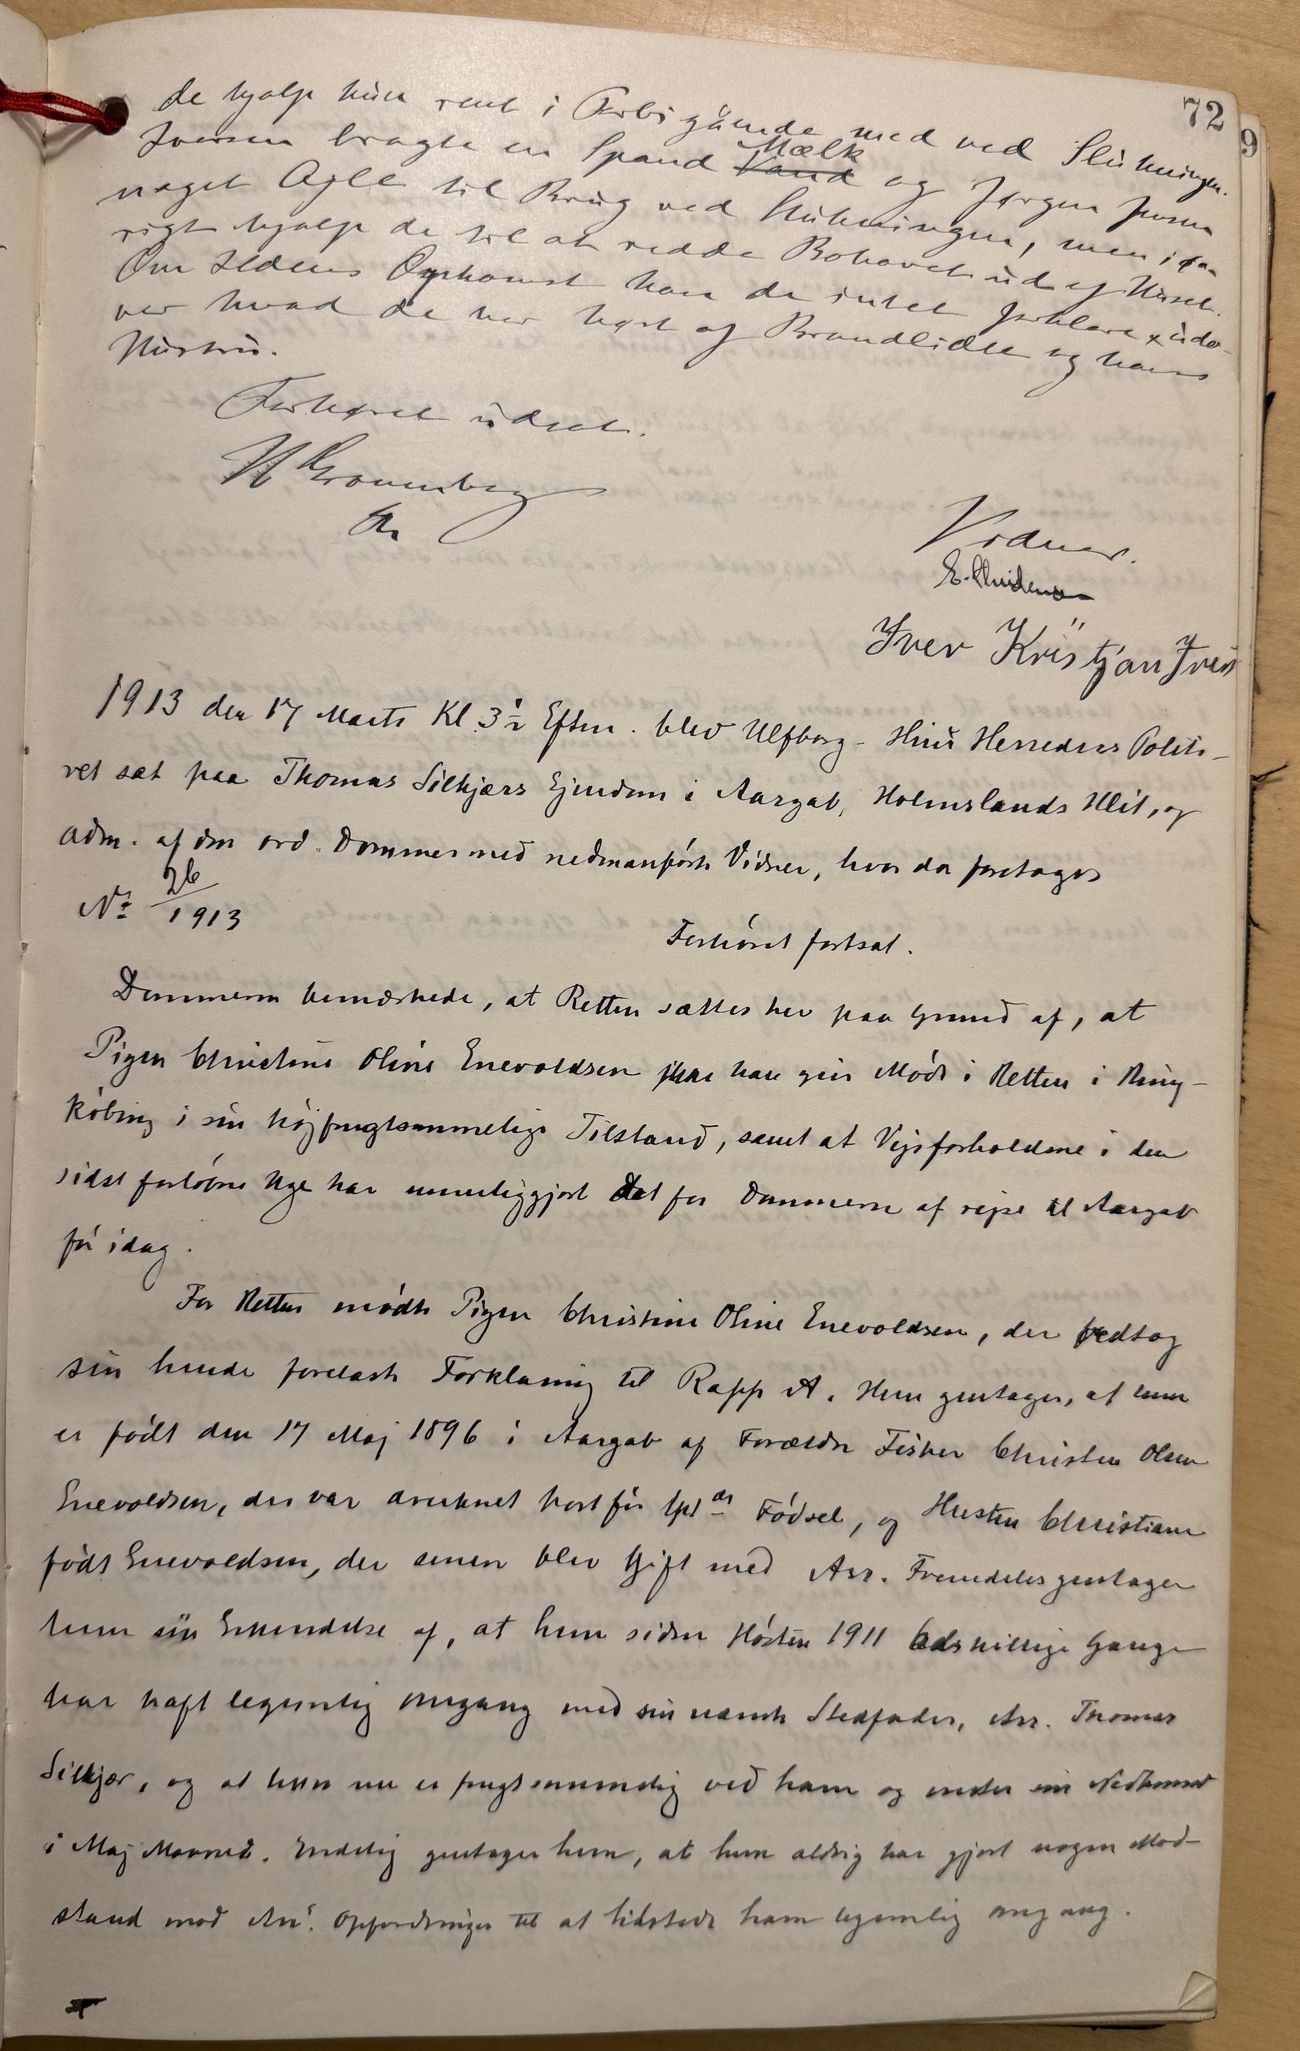 72
9
de hjalp kun rent i Forbigaaende med ved Slukningen.
Iversen bragte en Spand Vand Mælk og Jørgen Jensen
noget Ajle til Brug ved Slukningen, men iøv-
rigt hjalp de til at redde Bohavet ud af Huset.
Om Ildens Opkomst kan de intet forklare udo-
ver hvad de har hørt af Brandlidte og hans
Hustru.
Forhøret udsat.
Vidner.
Iver Kristjan Ivers
1913 den 17 Marts Kl. 3½ Eftm. blev Ulfborg-Hind Herreders Politi-
ret sat paa Thomas Silkjærs Ejendom i Aargab, Holmslands Klit, og
adm. af den ord. Dommer med nedenanførte Vidner, hvor da foretoges
No 26/1913
Forhøret fortsat.
Dommeren bemærkede, at Retten sættes her paa Grund af, at
Pigen Christine Oline Enevoldsen ikke kan give Møde i Retten i Ring-
købing i sin højfrugtsommelige Tilstand, samt at Vejrforholdene i den
sidst forløbne Uge har umuliggjort det for Dommeren at rejse til Aargab
før idag.
For Retten mødte Pigen Christine Oline Enevoldsen, der vedtog
sin hende forelæste Forklaring til Rapp A. Hun gentager, at hun
er født den 17 Maj 1896 i Aargab af Forældre Fisker Christen Olsen
Enevoldsen, der var druknet kort før Cptds Fødsel, og Hustru Christiane
født Enevoldsen, der senere blev gift med Arr. Fremdeles gentager
hun sin Erkendelse af, at hun siden Høsten 1911 adskillige Gange
har haft legemlig Omgang med sin nævnte Stedfader, Arr. Thomas
Silkjær, og at hun nu er frugtsommelig ved ham og venter sin Nedkomst
i Maj Maaned. Endelig gentager hun, at hun aldrig har gjort nogen Mod-
stand mod Arrs. Opfordringer til at tilstede ham legemlig Omgang.